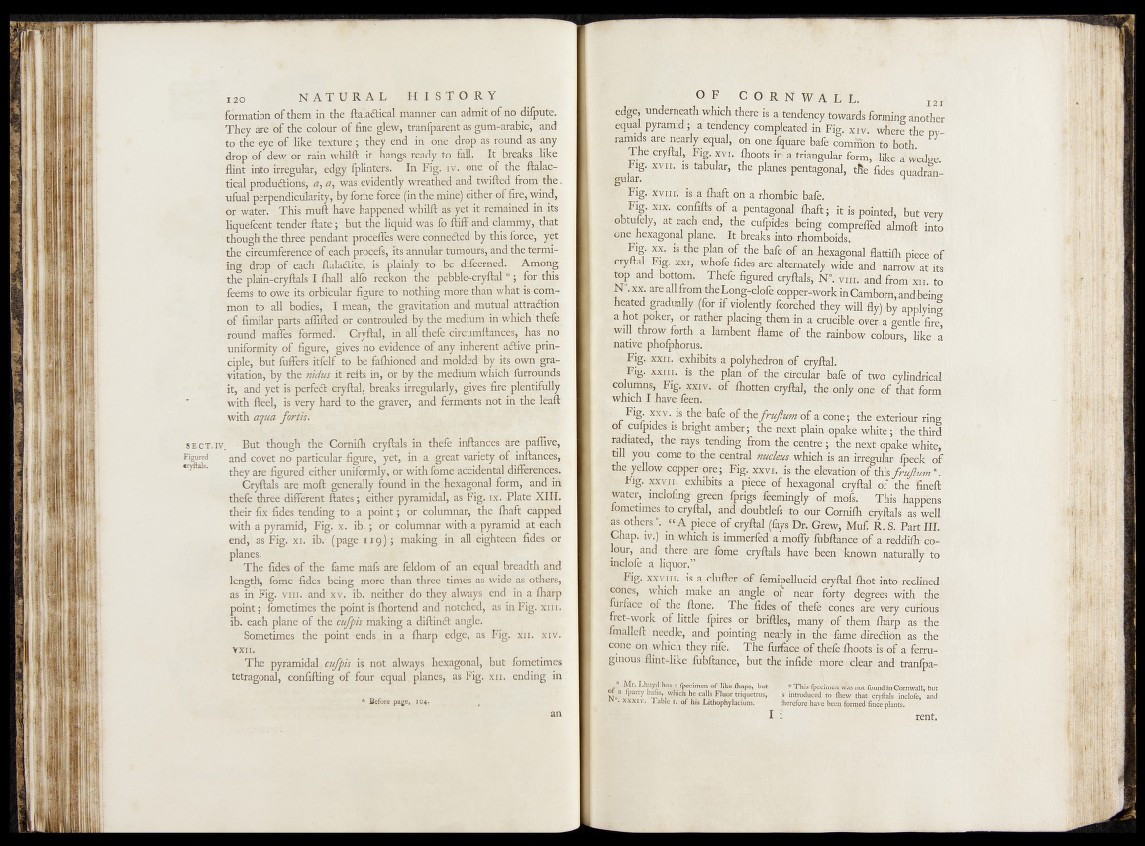 120 NATURAL HISTORY
formation of them in the ſtalactical manner can admit of no diſpute.
They are of the colour of fine glew, tranſparent as gum-arabic, and
to the eye of like texture ; they end in one drop as round as any
drop of dew or rain whilſt it hangs ready to fall. It breaks like
flint into irregular, edgy ſplinters. In Fig. IV. one of the ſtalac-
tical productions, a, a, was evidently wreathed and twiſted from the
uſual perpendicularity, by ſome force (in the mine) either of fire, wind,
or water. This muſt have happened whilſt as yet it remained in its
liqueſcent tender ſtate ; but the liquid was ſo ſtiff and clammy, that
though the three pendant proceſſes were connected by this force, yet
the circumference of each proceſs, its annular tumours, and the termi-
ing drop of each ſtalactite, is plainly to be diſcerned. Among
the plain-cryſtals I ſhall alſo reckon the pebble-cryſtal ; for this
ſeems to owe its orbicular figure to nothing more than what is com-
mon to all bodies, I mean, the gravitation and mutual attraction
of ſimilar parts aſſiſted or controuled by the medium in which theſe
round maſſes formed. Cryſtal, in all theſe circumſtances, has no
uniformity of figure, gives no evidence of any inherent active prin-
ciple, but ſuffers itſelf to be faſhioned and molded by its own gra-
vitation, by the nidus it reſts in, or by the medium which ſurrounds
it, and yet is perfect cryſtal, breaks irregularly, gives fire plentifully
with ſteel, is very hard to the graver, and ferments not in the leaſt
with aqua fortis.
SECT. IV.
Figured
cryſtals.
But though the Corniſh cryſtals in theſe inſtances are paſſive,
and covet no particular figure, yet, in a great variety of inſtances,
they are figured either uniformly, or with ſome accidental differences.
Cryſtals are moſt generally found in the hexagonal form, and in
theſe three different ſtates ; either pyramidal, as Fig. IX. Plate XIII.
their ſix ſides tending to a point ; or columnar, the ſhaft capped
with a pyramid, Fig. X. ib. ; or columnar with a pyramid at each
end, as Fig. XI. ib. (page 119) ; making in all eighteen ſides or
planes.
The ſides of the ſame maſs are ſeldom of an equal breadth and
length, ſome ſides being more than three times as wide as others,
as in Fig. VIII. and XV. ib. neither do they always end in a ſharp
point ; ſometimes the point is ſhortend and notched, as in Fig. XIII.
ib. each plane of the cuſpis making a diſtinct angle.
Sometimes the point ends in a ſharp edge, as Fig. XII. XIV.
XXII.
The pyramidal cuſpis is not always hexagonal, but ſometimes
tetragonal, conſiſting of four equal planes, as Fig. XII. ending in
Before page, 104.
an
OF CORNWALL. 121
edge, underneath which there is a tendency towards forming another
equal pyramid ; a tendency compleated in Fig. XIV. where the py-
ramids are nearly equal, on one ſquare baſe common to both.
The cryſtal, Fig. XVI. ſhoots in a triangular form, like a wedge.
Fig. XVII. is tabular, the planes pentagonal, the ſides quadran-
gular.
Fig. XVIII. is a ſhaft on a rhombic baſe.
Fig. XIX. conſiſts of a pentagonal ſhaft ; it is pointed, but very
obtuſely, at each end, the cuſpides being compreſſed almoſt into
one hexagonal plane. It breaks into rhomboids.
Fig. XX. is the plan of the baſe of an hexagonal flattiſh piece of
cryſtal Fig. XXI, whoſe ſides are alternately wide and narrow at its
top and bottom. Theſe figured cryſtals, N°. VIII. and from XII. to
N°. XX. are all from the Long-cloſe copper-work in Camborn, and being
heated gradually (for if violently ſcorched they will fly) by applying
a hot poker, or rather placing them in a crucible over a gentle fire,
will throw forth a lambent flame of the rainbow colours, like a
native phoſphorus.
Fig. XXII. exhibits a polyhedron of cryſtal.
Fig. XXIII. is the plan of the circular baſe of two cylindrical
columns, Fig. XXIV. of ſhotten cryſtal, the only one of that form
which I have ſeen.
Fig. XXV. is the baſe of the fruſtum of a cone ; the exteriour ring
of cuſpides is bright amber ; the next plain opake white ; the third
radiated, the rays tending from the centre ; the next opake white,
till you come to the central nucleus which is an irregular ſpeck of
the yellow copper ore ; Fig. XXVI. is the elevation of this fruſtum.
Fig. XXVII. exhibits a piece of hexagonal cryſtal of the fineſt
water, incloſing green ſprigs ſeemingly of moſs. This happens
ſometimes to cryſtal, and doubtleſs to our Corniſh cryſtals as well
as others. "A piece of cryſtal (ſays Dr. Grew, Muſ. R. S. Part III.
Chap. iv.) in which is immerſed a moſſy ſubſtance of a reddiſh co-
lour, and there are ſome cryſtals have been known naturally to
incloſe a liquor."
Fig. XXVIII. is a cluſter of ſemipellucid cryſtal ſhot into reclined
cones, which make an angle of near forty degrees with the
ſurface of the ſtone. The ſides of theſe cones are very curious
fret-work of little ſpires or briſtles, many of them ſharp as the
ſmalleſt needle, and pointing nearly in the ſame direction as the
cone on which they riſe. The ſurface of theſe ſhoots is of a ferru-
ginous flint-like ſubſtance, but the inſide more clear and tranſpa-
Mr. Lhuyd has a ſpecimen of like ſhape, but
of a ſparry baſis, which he calls Fluor triquetrus,
N°. XXXIV. Table I. of his Lithophylacium.
This ſpecimen was not found in Cornwall, but
s introduced to ſhew that cryſtals incloſe, and
therefore have been formed ſince plants.
I
rent.